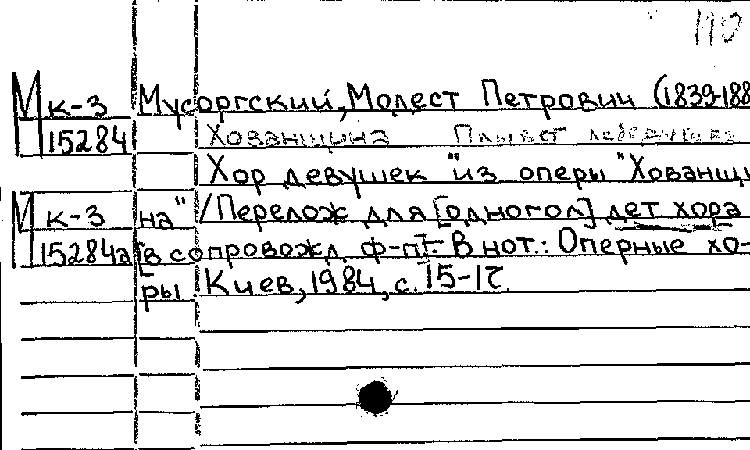 110
М к-3 Мусоргский, Модест Петрович (1839-188
15284 Хованщина Плывет лебедушка
Хор девушек "из оперы "Хованщи
М к-3 на" /Перелож для [одногол] дет хора
15284а [в сопровожд. ф-п]. - В нот.: Оперные хо-
ры. Киев, 1984, с. 15-17.